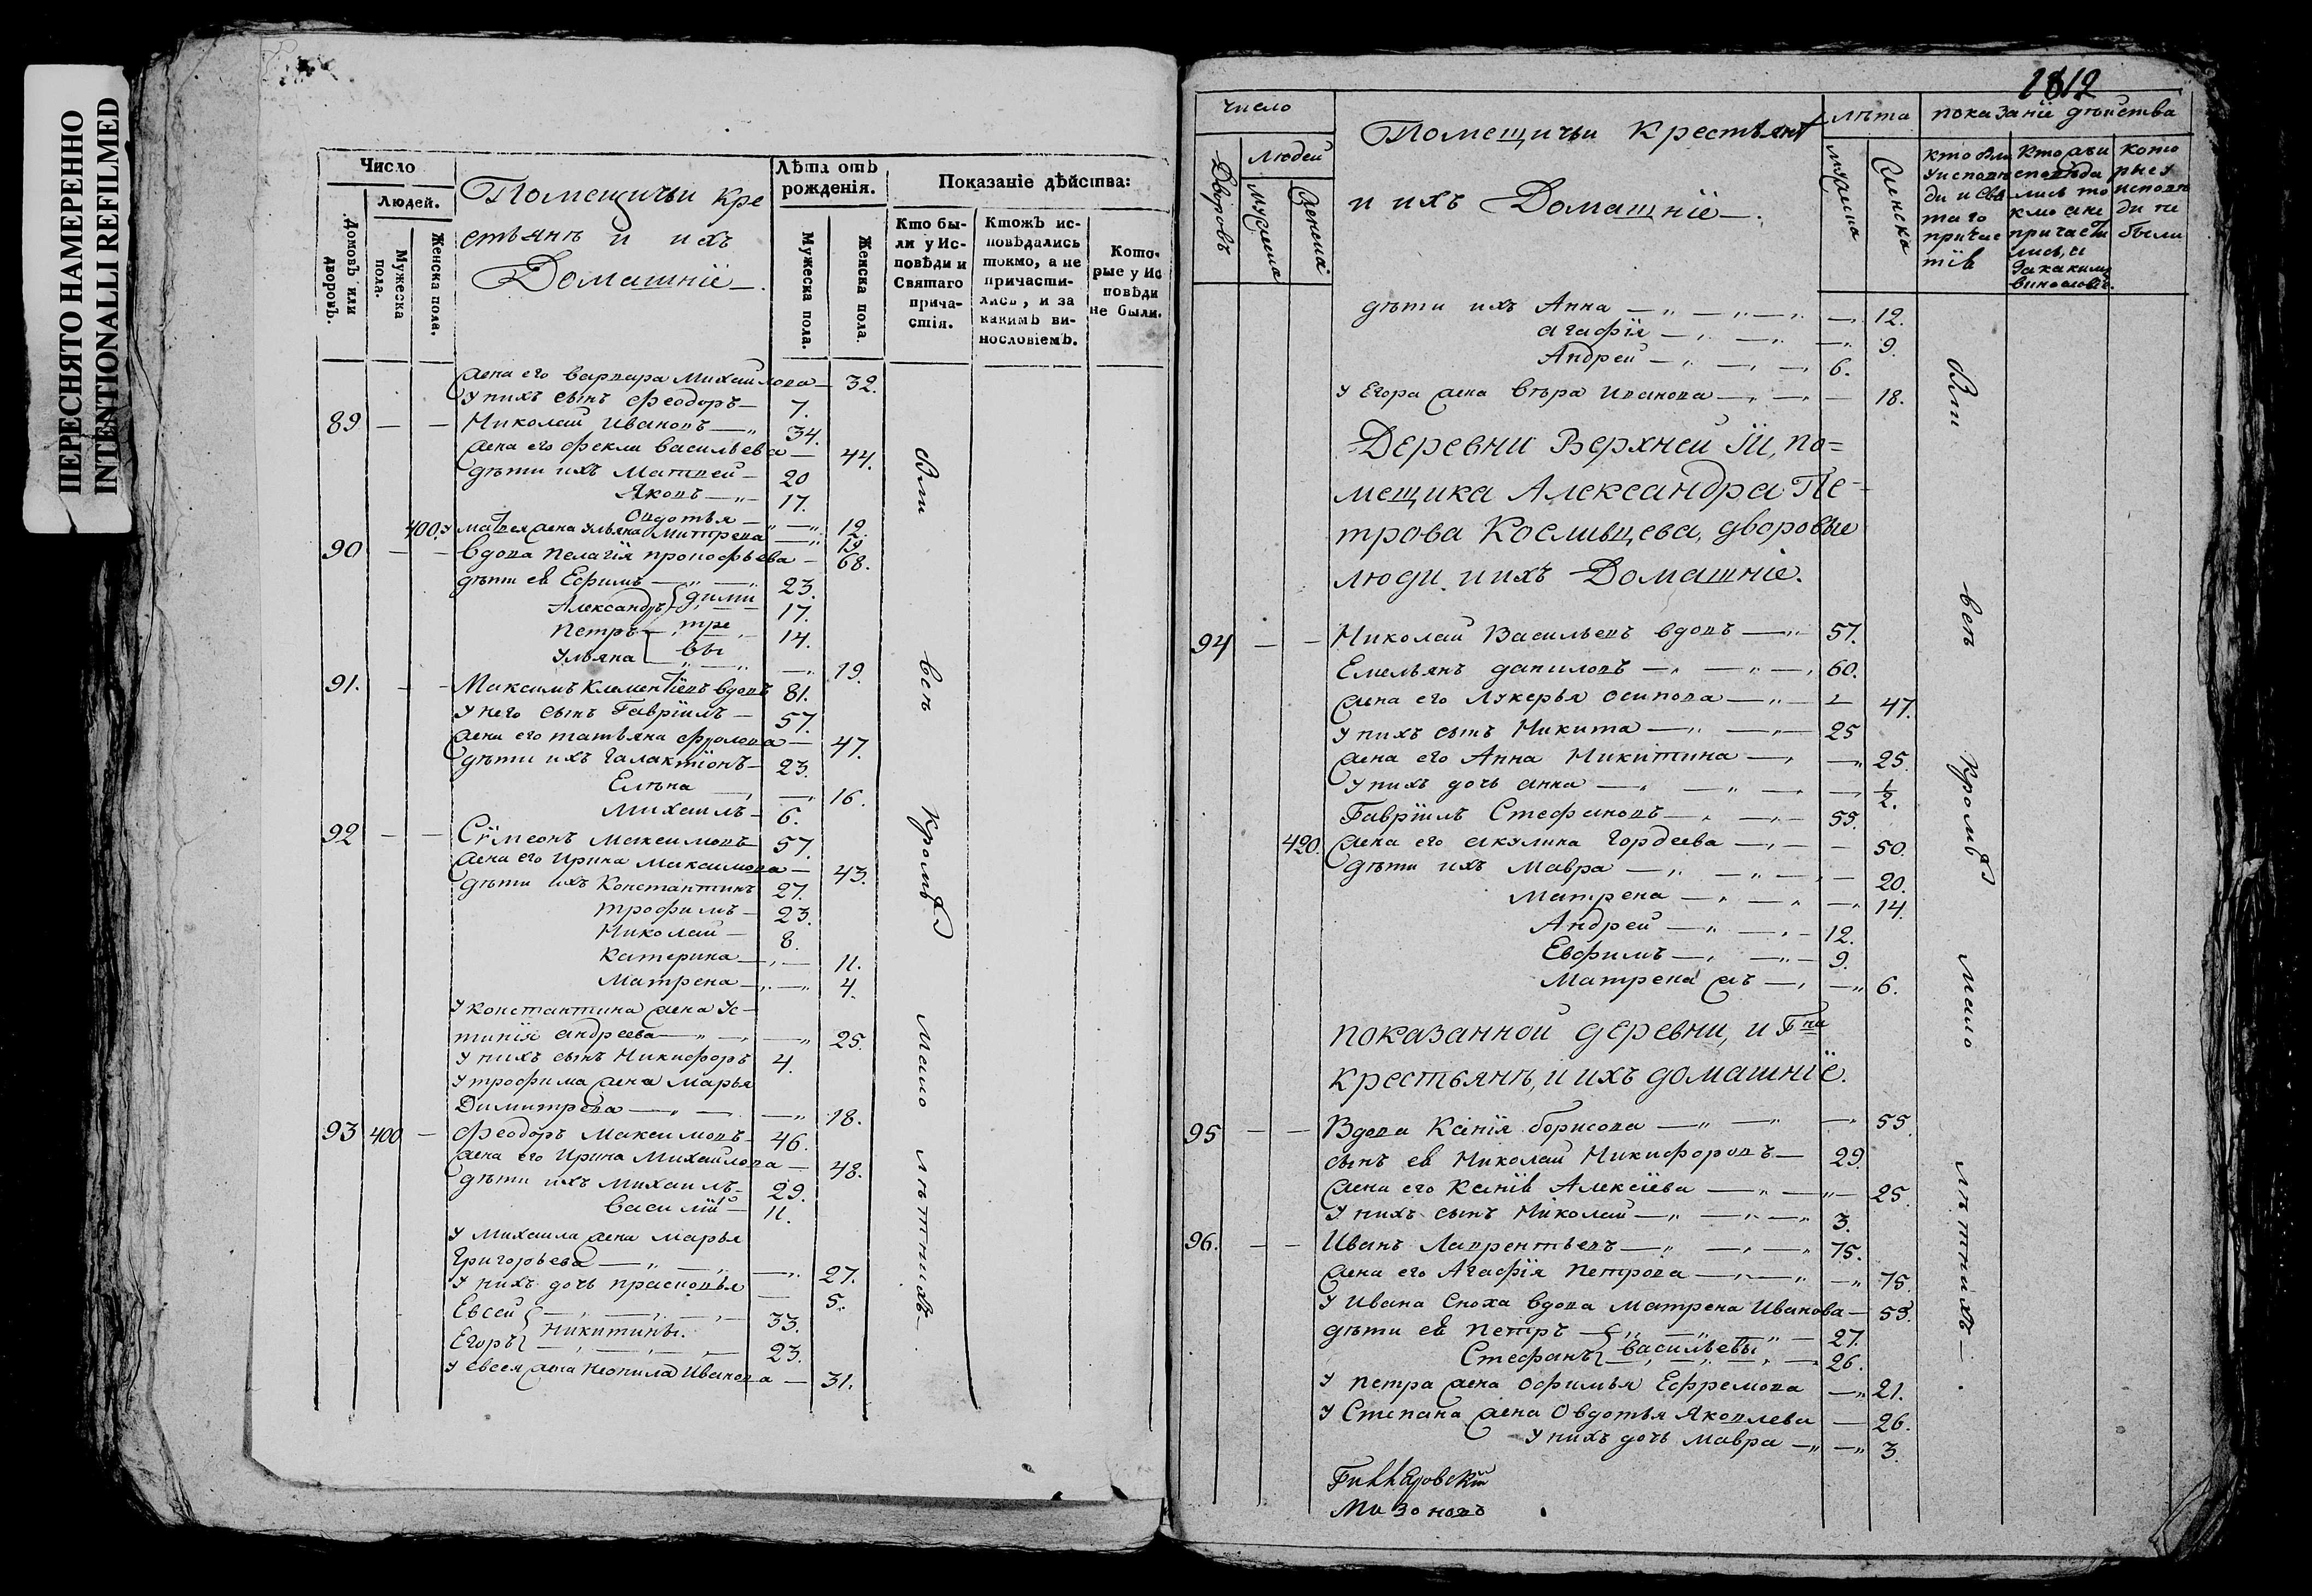 ПЕРЕСНЯТО НАМЕРЕННО
INTENTIONALLI REFILMED
Число
Людей.
Домовъ или дворовъ.
Мужеска пола.
Женска пола.
Помещичьи кре
стьянъ и ихъ
Домашніе
Лѣта отъ рожденія.
Мужеска пола.
Женска пола
Показаніе дѣйства:
Кто бы-
ли у Ис-
повѣди и
Святаго
прича-
стія.
Ктожъ ис-
повѣдались
токмо, а не
причасти-
лись, и за
какимъ ви-
нословіемъ.
Кото-
рые у Ис
повѣди
не были.
жена его варвара Михаилова — 32.
У нихъ сынъ Феодоръ — 7.
89 — — Николай Ивановъ — 34.
жена его Фекла васильева — 44.
дѣти ихъ Матвей — 20
Яковъ — 17.
Овдотья — 12.
400. У матвея жена Ульяна Митрева — 19
90 — — вдова пелагія прокофьева — 68.
дѣти ея Ефимъ — 23.
Александръ 17.
Петръ 14.
Ульяна 19.
дими
тре
вы
91. — — Максимъ Климентіевъ вдовъ 81.
У него сынъ Гавріилъ — 57.
жена его татьяна фролова — 47.
дѣти ихъ Галактіонъ — 23.
Елѣна — 16.
Михаилъ — 6.
92 — — Сѵмеонъ Максимовъ 57.
жена его Ирина Максимова — 43.
дѣти ихъ Константинъ 27.
трофимъ — 23.
Николай — 8.
Катерина — 11.
Матрена — 4.
У константина жена Ус-
тинія андреева — 25.
У нихъ сынъ Никифоръ 4.
У трофима жена Марья
Димитрева — 18.
93 400 — Феодоръ Максимовъ 46.
жена его Ирина Михаилова — 48.
дѣти ихъ Михаилъ 29.
Василій — 11.
У Михаила жена Марья
Григорьева — 27.
У нихъ дочь прасковья 5.
Евсей — 33.
Егоръ — 23.
Никитины.
У евсея жена Неонила Иванова — 31.
были
всѣ
кромѣ
мало
лѣтнихъ
1812
число
Дворовъ
людей
мужеска
женска
Помещичьи крестьянъ
и ихъ Домашніе.
лѣта
мужеска
женска
показаніе дѣйства
кто были
у исповѣ
ди и свя
таго
причас
тія
кто жъ и
сповѣда
лись то
кмо а не
причасти
лись, и
за какимъ
винословіемъ.
кото
рые у
исповѣ
ди не
были
дѣти ихъ Анна — 12.
агафія — 9.
Андрей — 6.
У Егора жена вѣра Иванова — 18.
Деревни Верхней Ій, по=
мещика Александра Пе-
трова Косливцева, дворовые
люди и ихъ Домашніе.
94 — — Николай Васильевъ вдовъ — 57.
Емельянъ даниловъ — 60.
жена его лукерья осипова — 47.
У нихъ сынъ Никита — 25
жена его Анна Никитина — 25.
У нихъ дочь анна — ½.
Гавріилъ Стефановъ — 55.
420. жена его акулина Гордеева — 50.
дѣти ихъ Мавра — 20.
Матрена — 14.
Андрей — 12.
Евфимъ — 9.
Матрена жъ — 6.
показанной деревни, и Гпна
крестьянъ, и ихъ домашніе.
95 — — Вдова Ксенія борисова — 55.
сынъ ея Николай Никифоровъ — 29.
жена его Ксенія Алексіева — 25.
У нихъ сынъ Николай — 3.
96. — — Иванъ Лаврентьевъ — 75.
жена его Агафія Петрова — 75.
У Ивана сноха вдова Матрена Иванова — 53.
дѣти ея Петръ — 27.
Стефанъ — 26.
васильевы
У петра жена офимья Ефремова — 21.
У Степана жена Овдотья Яковлева — 26.
У нихъ дочь Мавра — 3.
были
всѣ
кромѣ
мало
лѣтнихъ